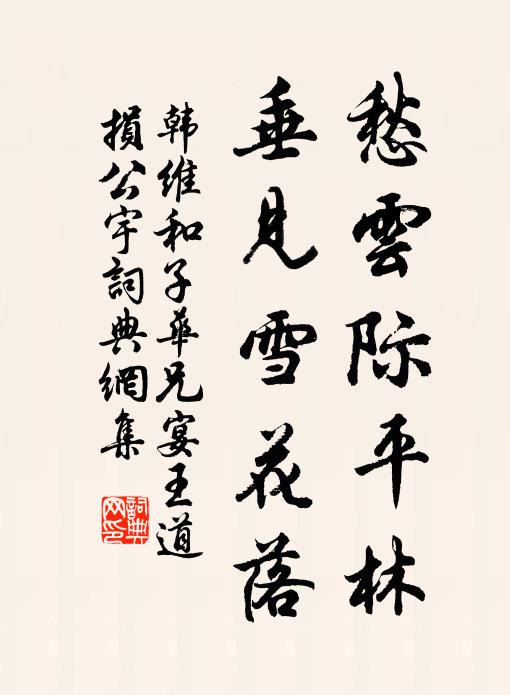 愁雲际平林
垂見雪花落
韩維和子華兄宴王道
損公宇詞典網集
詞典網印